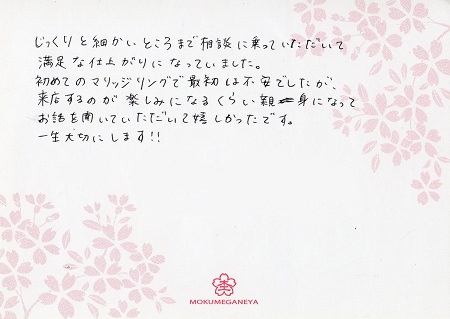 じっくりと細かいところまで相談に乗っていただいて
満足な仕上がりになっていました。
初めてのマリッジリングで最初は不安でしたが、
来店するのが楽しみになるくらい親身になって
お話を聞いていただいて嬉しかったです。
一生大切にします!!
MOKUMEGANEYA